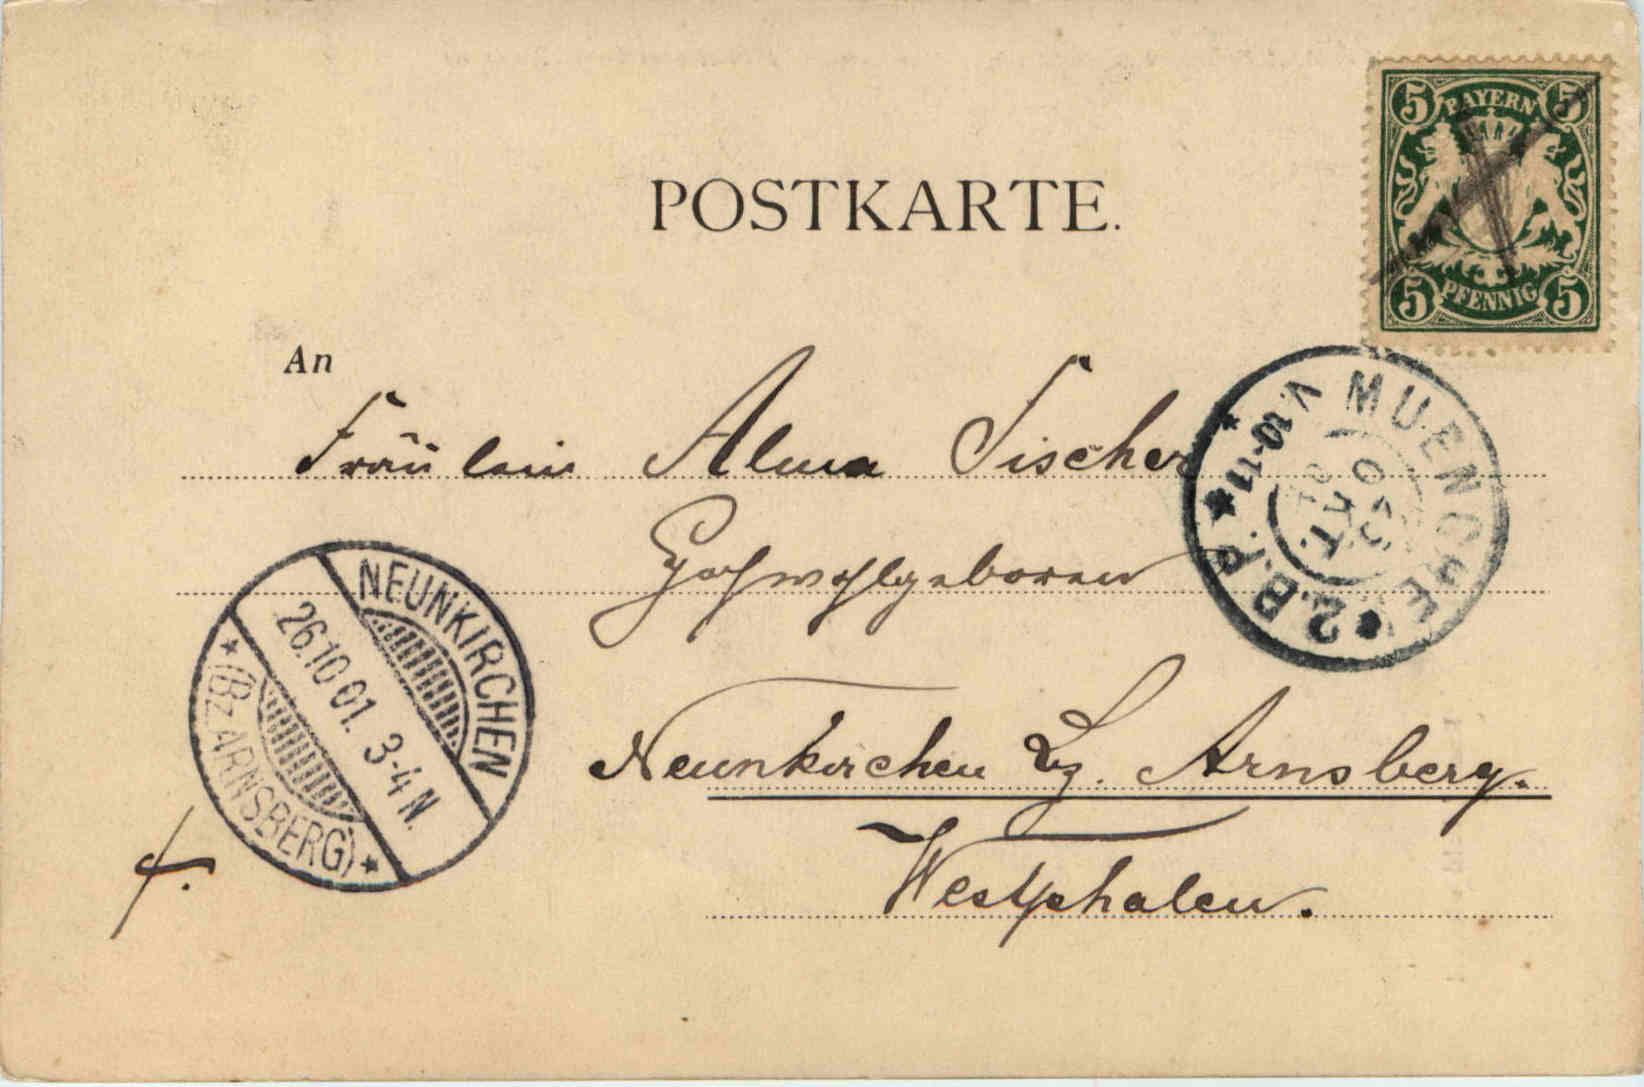 5 BAYERN 5
5 PFENNIG 5
POSTKARTE.
An
Fräulein Alma Fischer
Hochwohlgeboren
MUENCHEN * 2.B.P. * V. 10-11 *
OKT.
NEUNKIRCHEN
26.10 01. 3-4 N.
* (BZ. ARNSBERG) *
Neunkirchen Bz. Arnsberg.
Westphalen.
f.